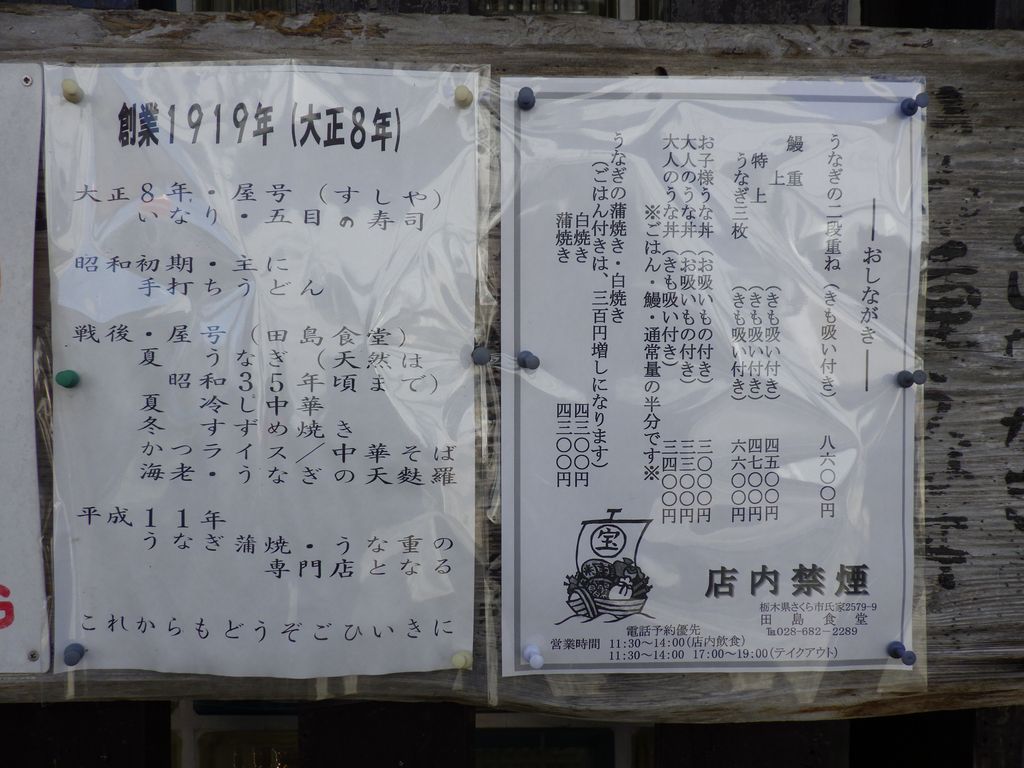 創業1919年 (大正8年)
大正8年・屋号(すしや)
いなり・五目の寿司
昭和初期・主に
手打ちうどん
戦後・屋号(田島食堂)
夏 うなぎ(天然は
昭和35年頃まで)
夏 冷し中華
冬 すずめ焼き
かつライス/中華そば
海老・うなぎの天麩羅
平成11年
うなぎ蒲焼・うな重の
専門店となる
これからもどうぞごひいきに
― おしながき ―
うなぎの二段重ね (きも吸い付き) 八六〇〇円
鰻重
上 (きも吸い付き) 四五〇〇円
特上 (きも吸い付き) 四七〇〇円
うなぎ三枚 (きも吸い付き) 六六〇〇円
お子様うな丼 (お吸いもの付き) 三〇〇〇円
大人のうな丼 (お吸いもの付き) 三三〇〇円
大人のうな丼 (きも吸い付き) 三四〇〇円
※ごはん・鰻・通常量の半分です※
うなぎの蒲焼き・白焼き
(ごはん付きは、三百円増しになります)
白焼き 四三〇〇円
蒲焼き 四三〇〇円
宝
店内禁煙
栃木県さくら市氏家2579-9
田島食堂
℡028-682-2289
電話予約優先
営業時間 11:30～14:00(店内飲食)
11:30～14:00 17:00～19:00(テイクアウト)